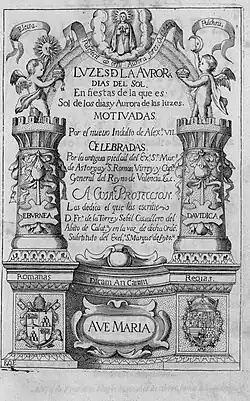 Electa
Pulchra
LVZES D LA AVRORA
DIAS DEL SOL,
En fiestas de la que es
Sol de los dias, y Aurora de las luzes.
MOTIVADAS
Por el nuevo Indulto de Alex. VII.
CELEBRADAS.
Por la antigua piedad del Ex. Sr. Mar.
de Astorga y S. Roman Virrey y Cap.
General del Reyno de Valencia. Ec.
A CUIA PROTECCION
Las dedica el que las escrive
D. Fr. de la Torre y Sebil Cavallero del
Abito de Calat. y en la voz de dicha Orde
Substituto del Exel. Sr. Marques de
EBVRNEA
DAVIDICA
Romanas
Dicam An Canam
Regias
AVE MARIA